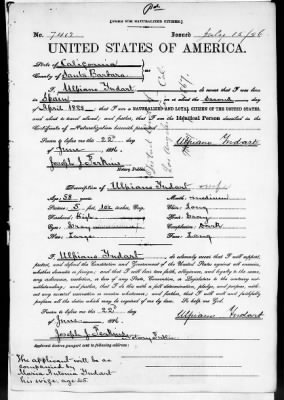 [FORM FOR NATURALIZED CITIZEN.]
No. 7412 Issued July 12/86
UNITED STATES OF AMERICA.
State of California
County of Santa Barbara
I, Ulpiano Yndart, do swear that I was born
in Spain on the second day
of April 1828; that I am a NATURALIZED AND LOYAL CITIZEN OF THE UNITED STATES,
and about to travel abroad; and further, that I am the Identical Person described in the
Certificate of Naturalization herewith
Sworn to before me this 22nd day
of June 1886. Ulpiano Yndart
Joseph J. Perkins
Notary Public.
Description of Ulpiano Yndart
Age: 58 years. Mouth: medium
Stature: 5 feet, inches, Eng. Chin: Long
Forehead: High Hair: Gray
Eyes: Gray Complexion: Dark
Nose: Large Face: Long
I, Ulpiano Yndart, do solemnly swear that I will support,
protect, and defend the Constitution and Government of the United States against all enemies,
whether domestic or foreign; and that I will bear true faith, allegiance, and loyalty to the same,
any ordinance, resolution, or law of any State, Convention, or Legislature to the contrary not-
withstanding; and further, that I do this with a full determination, pledge, and purpose, with-
out any mental reservation or evasion whatsoever; and further, that I will well and faithfully
perform all the duties which may be required of me by law. So help me God.
Sworn to before me this 22nd day
of June 1886. Ulpiano Yndart
Joseph J. Perkins
Notary Public
Applicant desires passport sent to following address:
The applicant will be ac
companied by
Maria Antonia Yndart
his wife, age